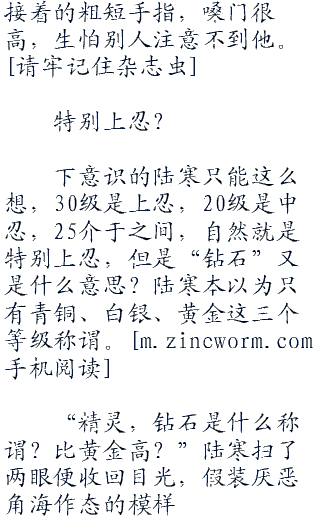 接着的粗短手指，嗓门很
高，生怕别人注意不到他。
[请牢记住杂志虫]
特别上忍？
下意识的陆寒只能这么
想，30级是上忍，20级是中
忍，25介于之间，自然就是
特别上忍，但是“钻石”又
是什么意思？陆寒本以为只
有青铜、白银、黄金这三个
等级称谓。[m.zincworm.com
手机阅读]
“精灵，钻石是什么称
谓？比黄金高？”陆寒扫了
两眼便收回目光，假装厌恶
角海作态的模样